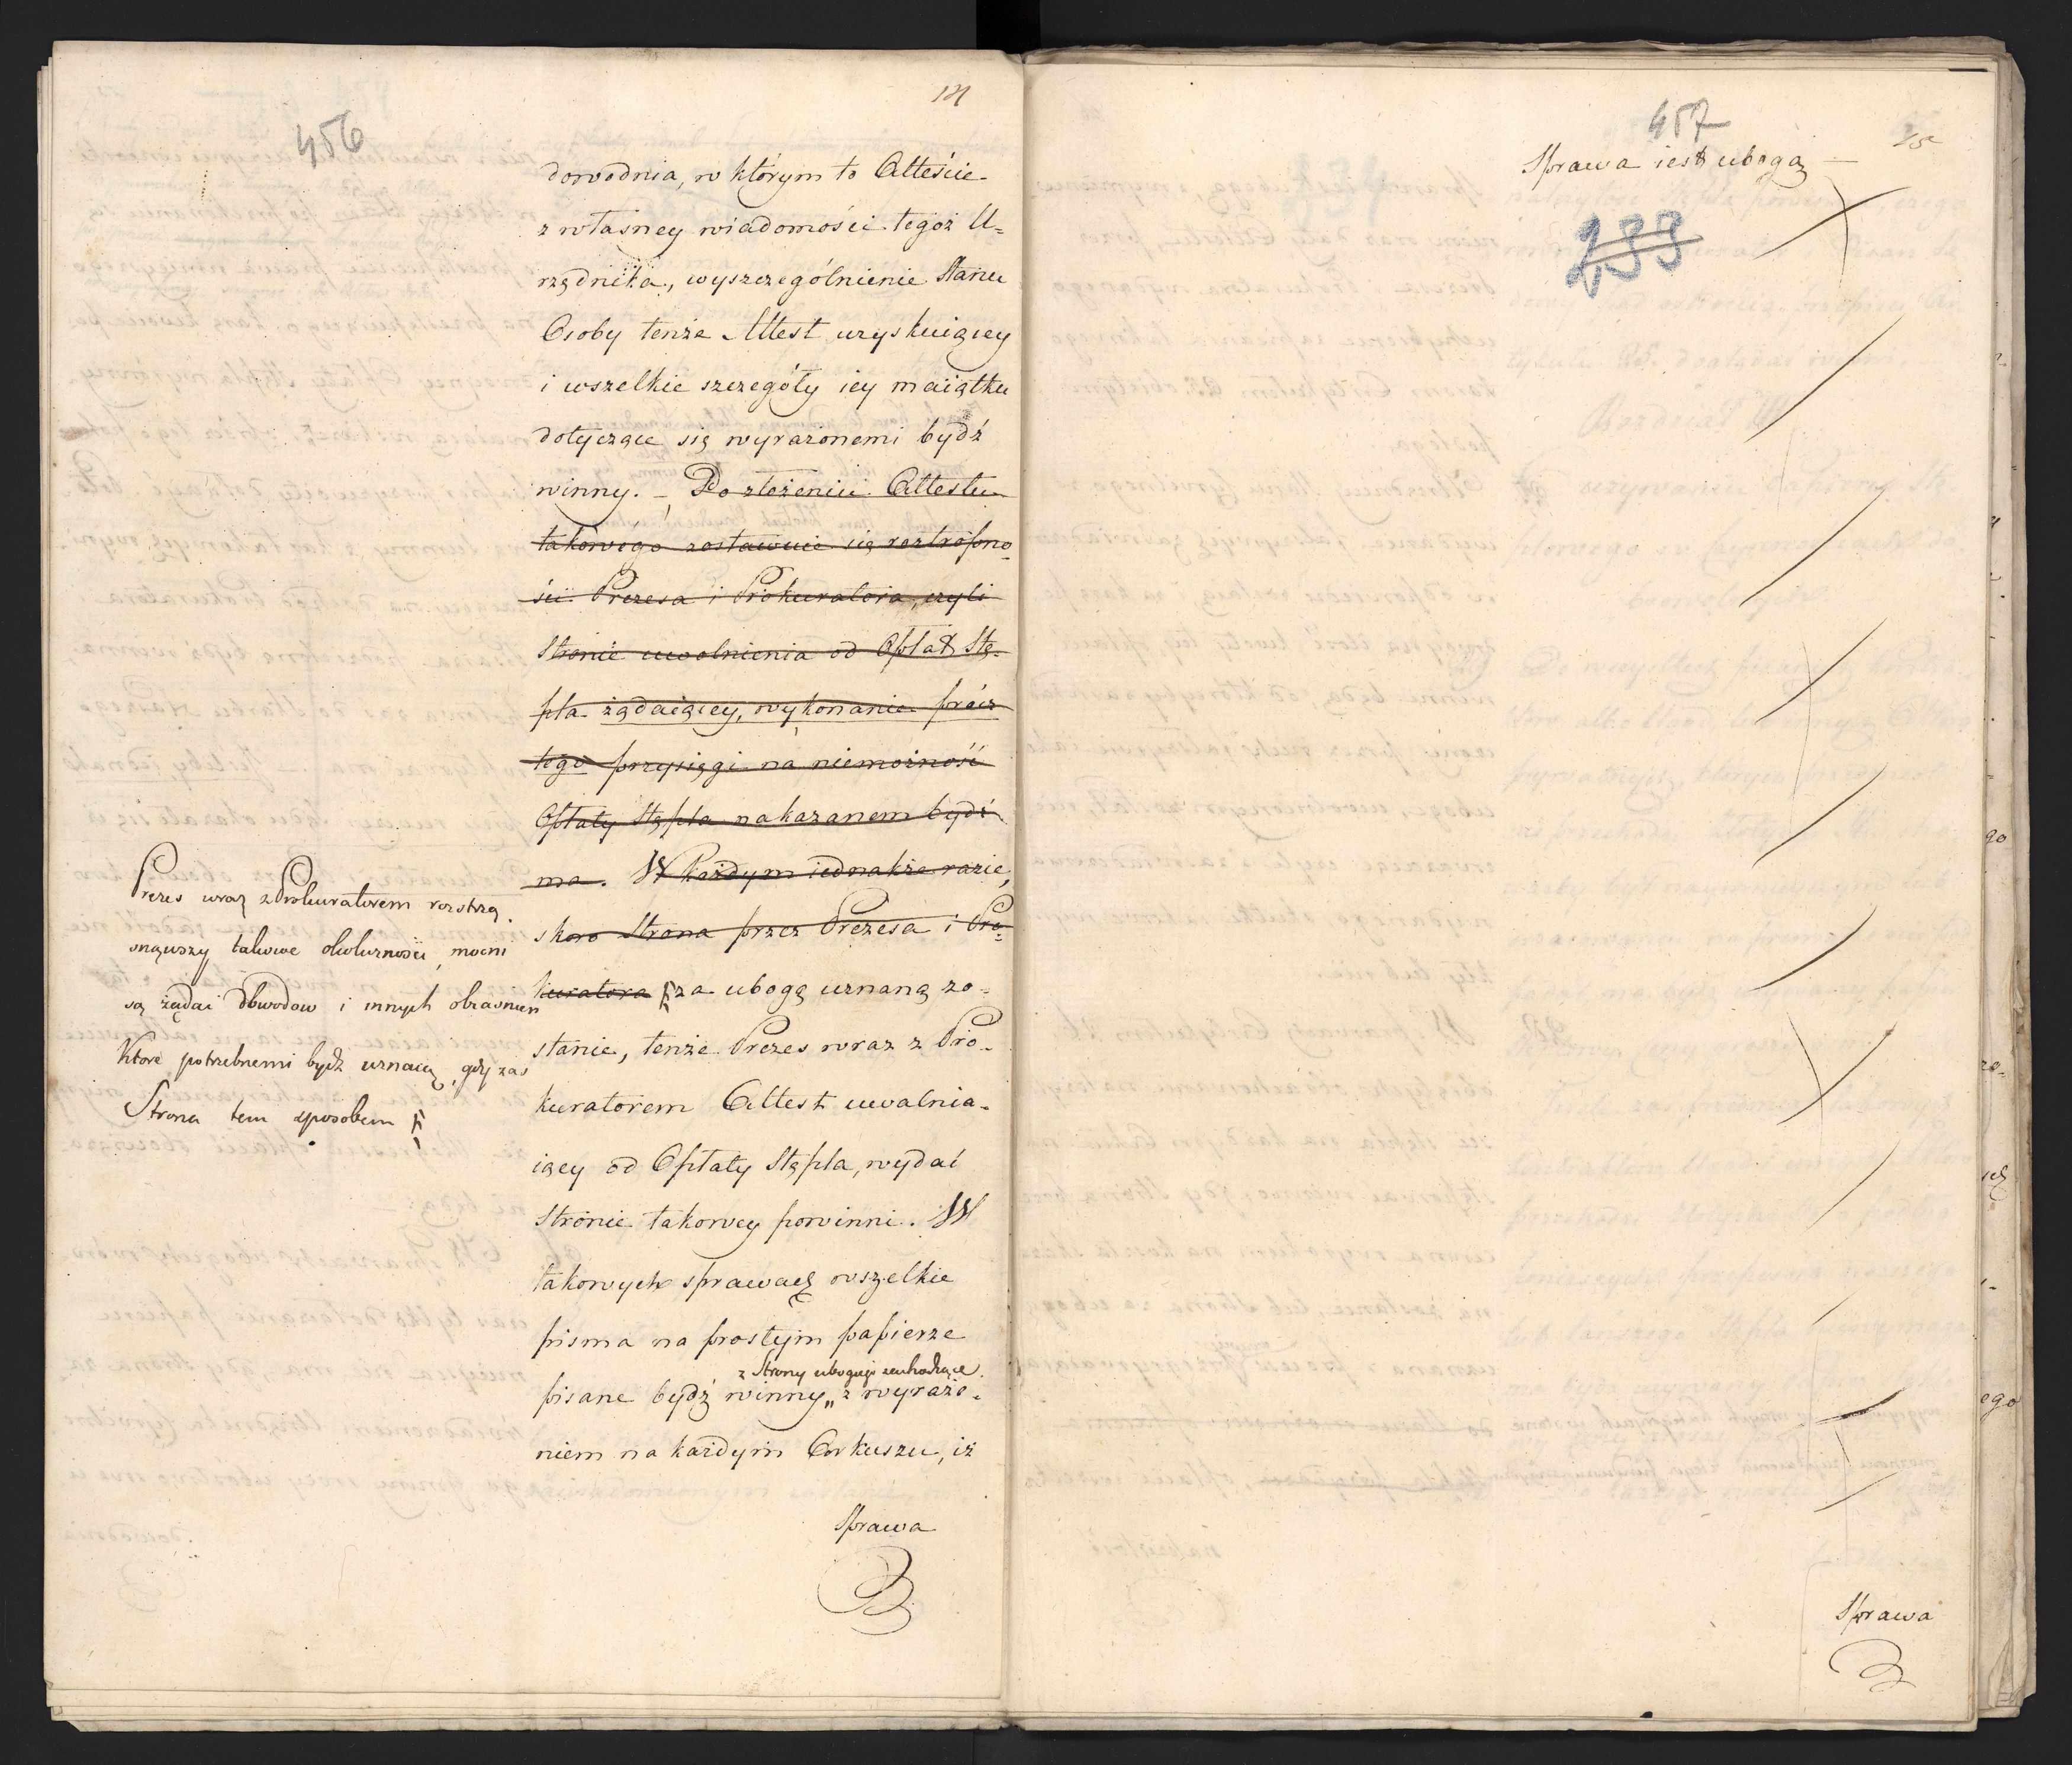 456
dowodnia, w którym to Atteście
z własney wiadomości tegoż U=
rzędnika, wyszczególnienie Stanu
Osoby tenże Attest uzyskuiącey
i wszelkie szczegóły iey maiątku
dotyczące się wyrażonemi bydź
winny. – Po złożeniu Attestu
takowego zostawuie się roztropno=
ści Prezesa i Prokuratora, czyli
Stronie uwolnienia od Opłat Stę=
pla żądaiącey, wykonanie prócz
tego przysięgi na niemożność
Opłaty Stępla nakazanem bydź
ma. W każdym iednakże razie,
skoro Strona przez Prezesa i Pro=
kuratora za ubogą uznaną zo=
stanie, tenże Prezes wraz z Pro=
kuratorem Attest uwalnia=
iący od Opłaty Stępla, wydać
Stronie takowey powinni. W
takowych sprawach wszelkie
pisma na prostym papierze
z Strony ubogiej zachodzące
pisane bydź winny „ z wyraże=
niem na każdym Arkuszu, iż
Sprawa
Prezes wraz z Prokuratorem rozstrzą=
snąwszy takowe okoliczności, mocni
są żądać dowodow i innych obiasnien
Ktore potrzebnemi bydź uznaią, gdy zas
Strona tem sposobem
457
25
Sprawa iest ubogą —
233
Sprawa